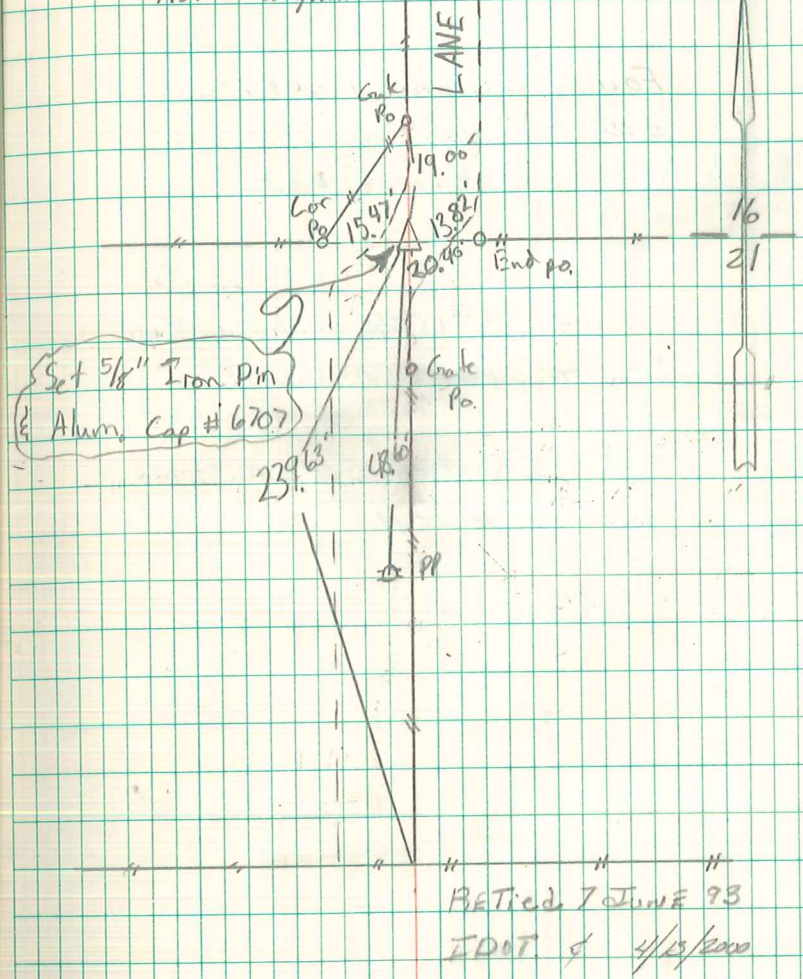 LANE
Gate
Po
19.00'
Cor
Po
15.47'
13.82'
20.46'
End po.
16
21
Set 5/8" Iron Pin
& Alum. Cap # 6707
Gate
Po.
239.63'
48.60'
PP
ReTied 7 June 93
IDOT & 4/13/2000